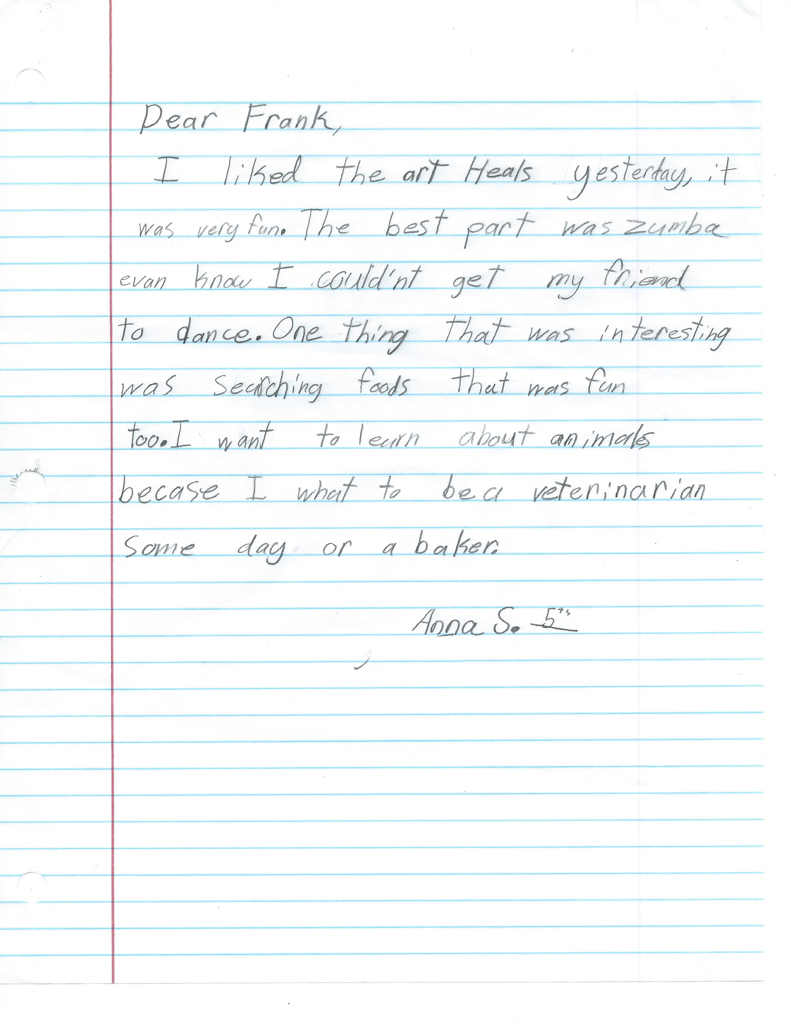 Dear Frank,
I liked the art Heals yesterday, it
was very fun. The best part was zumba
evan know I could'nt get my friend
to dance. One thing that was interesting
was searching foods that was fun
too. I want to learn about animals
becase I what to be a veterinarian
some day or a baker.
Anna S. 5th